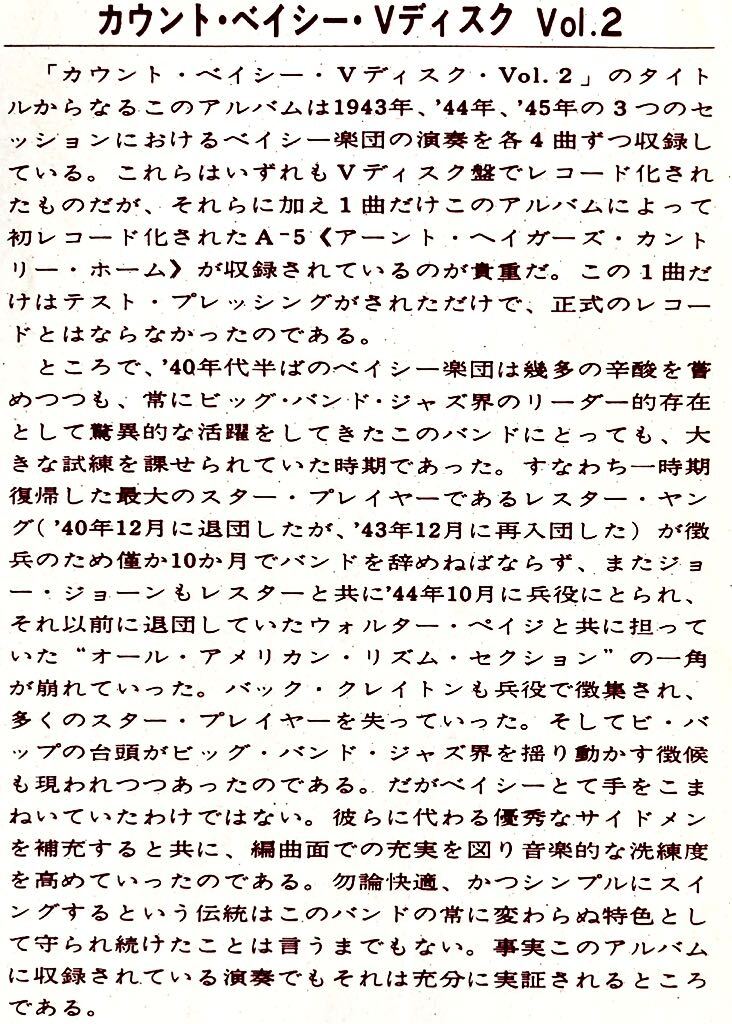 カウント・ベイシー・Vディスク Vol.2
「カウント・ベイシー・Vディスク・Vol.2」のタイト
ルからなるこのアルバムは1943年、'44年、'45年の3つのセ
ッションにおけるベイシー楽団の演奏を各4曲ずつ収録し
ている。これらはいずれもVディスク盤でレコード化され
たものだが、それらに加え1曲だけこのアルバムによって
初レコード化されたA-5《アーント・ヘイガーズ・カント
リー・ホーム》が収録されているのが貴重だ。この1曲だ
けはテスト・プレッシングがされただけで、正式のレコー
ドとはならなかったのである。
ところで、'40年代半ばのベイシー楽団は幾多の辛酸を嘗
めつつも、常にビッグ・バンド・ジャズ界のリーダー的存在
として驚異的な活躍をしてきたこのバンドにとっても、大
きな試練を課せられていた時期であった。すなわち一時期
復帰した最大のスター・プレイヤーであるレスター・ヤン
グ('40年12月に退団したが、'43年12月に再入団した)が徴
兵のため僅か10か月でバンドを辞めねばならず、またジョ
ー・ジョーンもレスターと共に'44年10月に兵役にとられ、
それ以前に退団していたウォルター・ペイジと共に担って
いた“オール・アメリカン・リズム・セクション”の一角
が崩れていった。バック・クレイトンも兵役で徴集され、
多くのスター・プレイヤーを失っていった。そしてビ・バ
ップの台頭がビッグ・バンド・ジャズ界を揺り動かす徴候
も現われつつあったのである。だがベイシーとて手をこま
ねいていたわけではない。彼らに代わる優秀なサイドメン
を補充すると共に、編曲面での充実を図り音楽的な洗練度
を高めていったのである。勿論快適、かつシンプルにスイ
ングするという伝統はこのバンドの常に変わらぬ特色とし
て守られ続けたことは言うまでもない。事実このアルバム
に収録されている演奏でもそれは充分に実証されるところ
である。